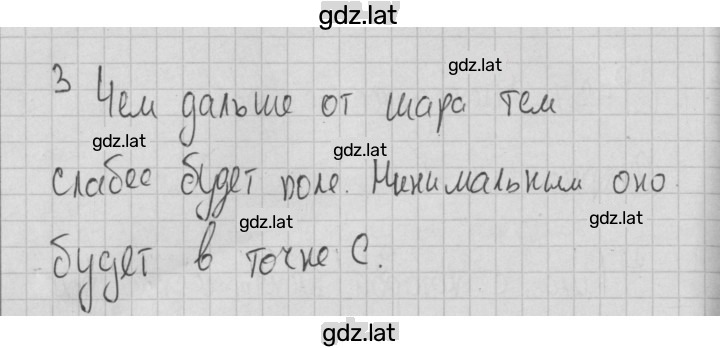 gdz.lat
3 Чем дальше от шара тем
gdz.lat
gdz.lat
gdz.lat
слабее будет поле. Минимальным оно
gdz.lat
gdz.lat
будет в точке С.
gdz.lat